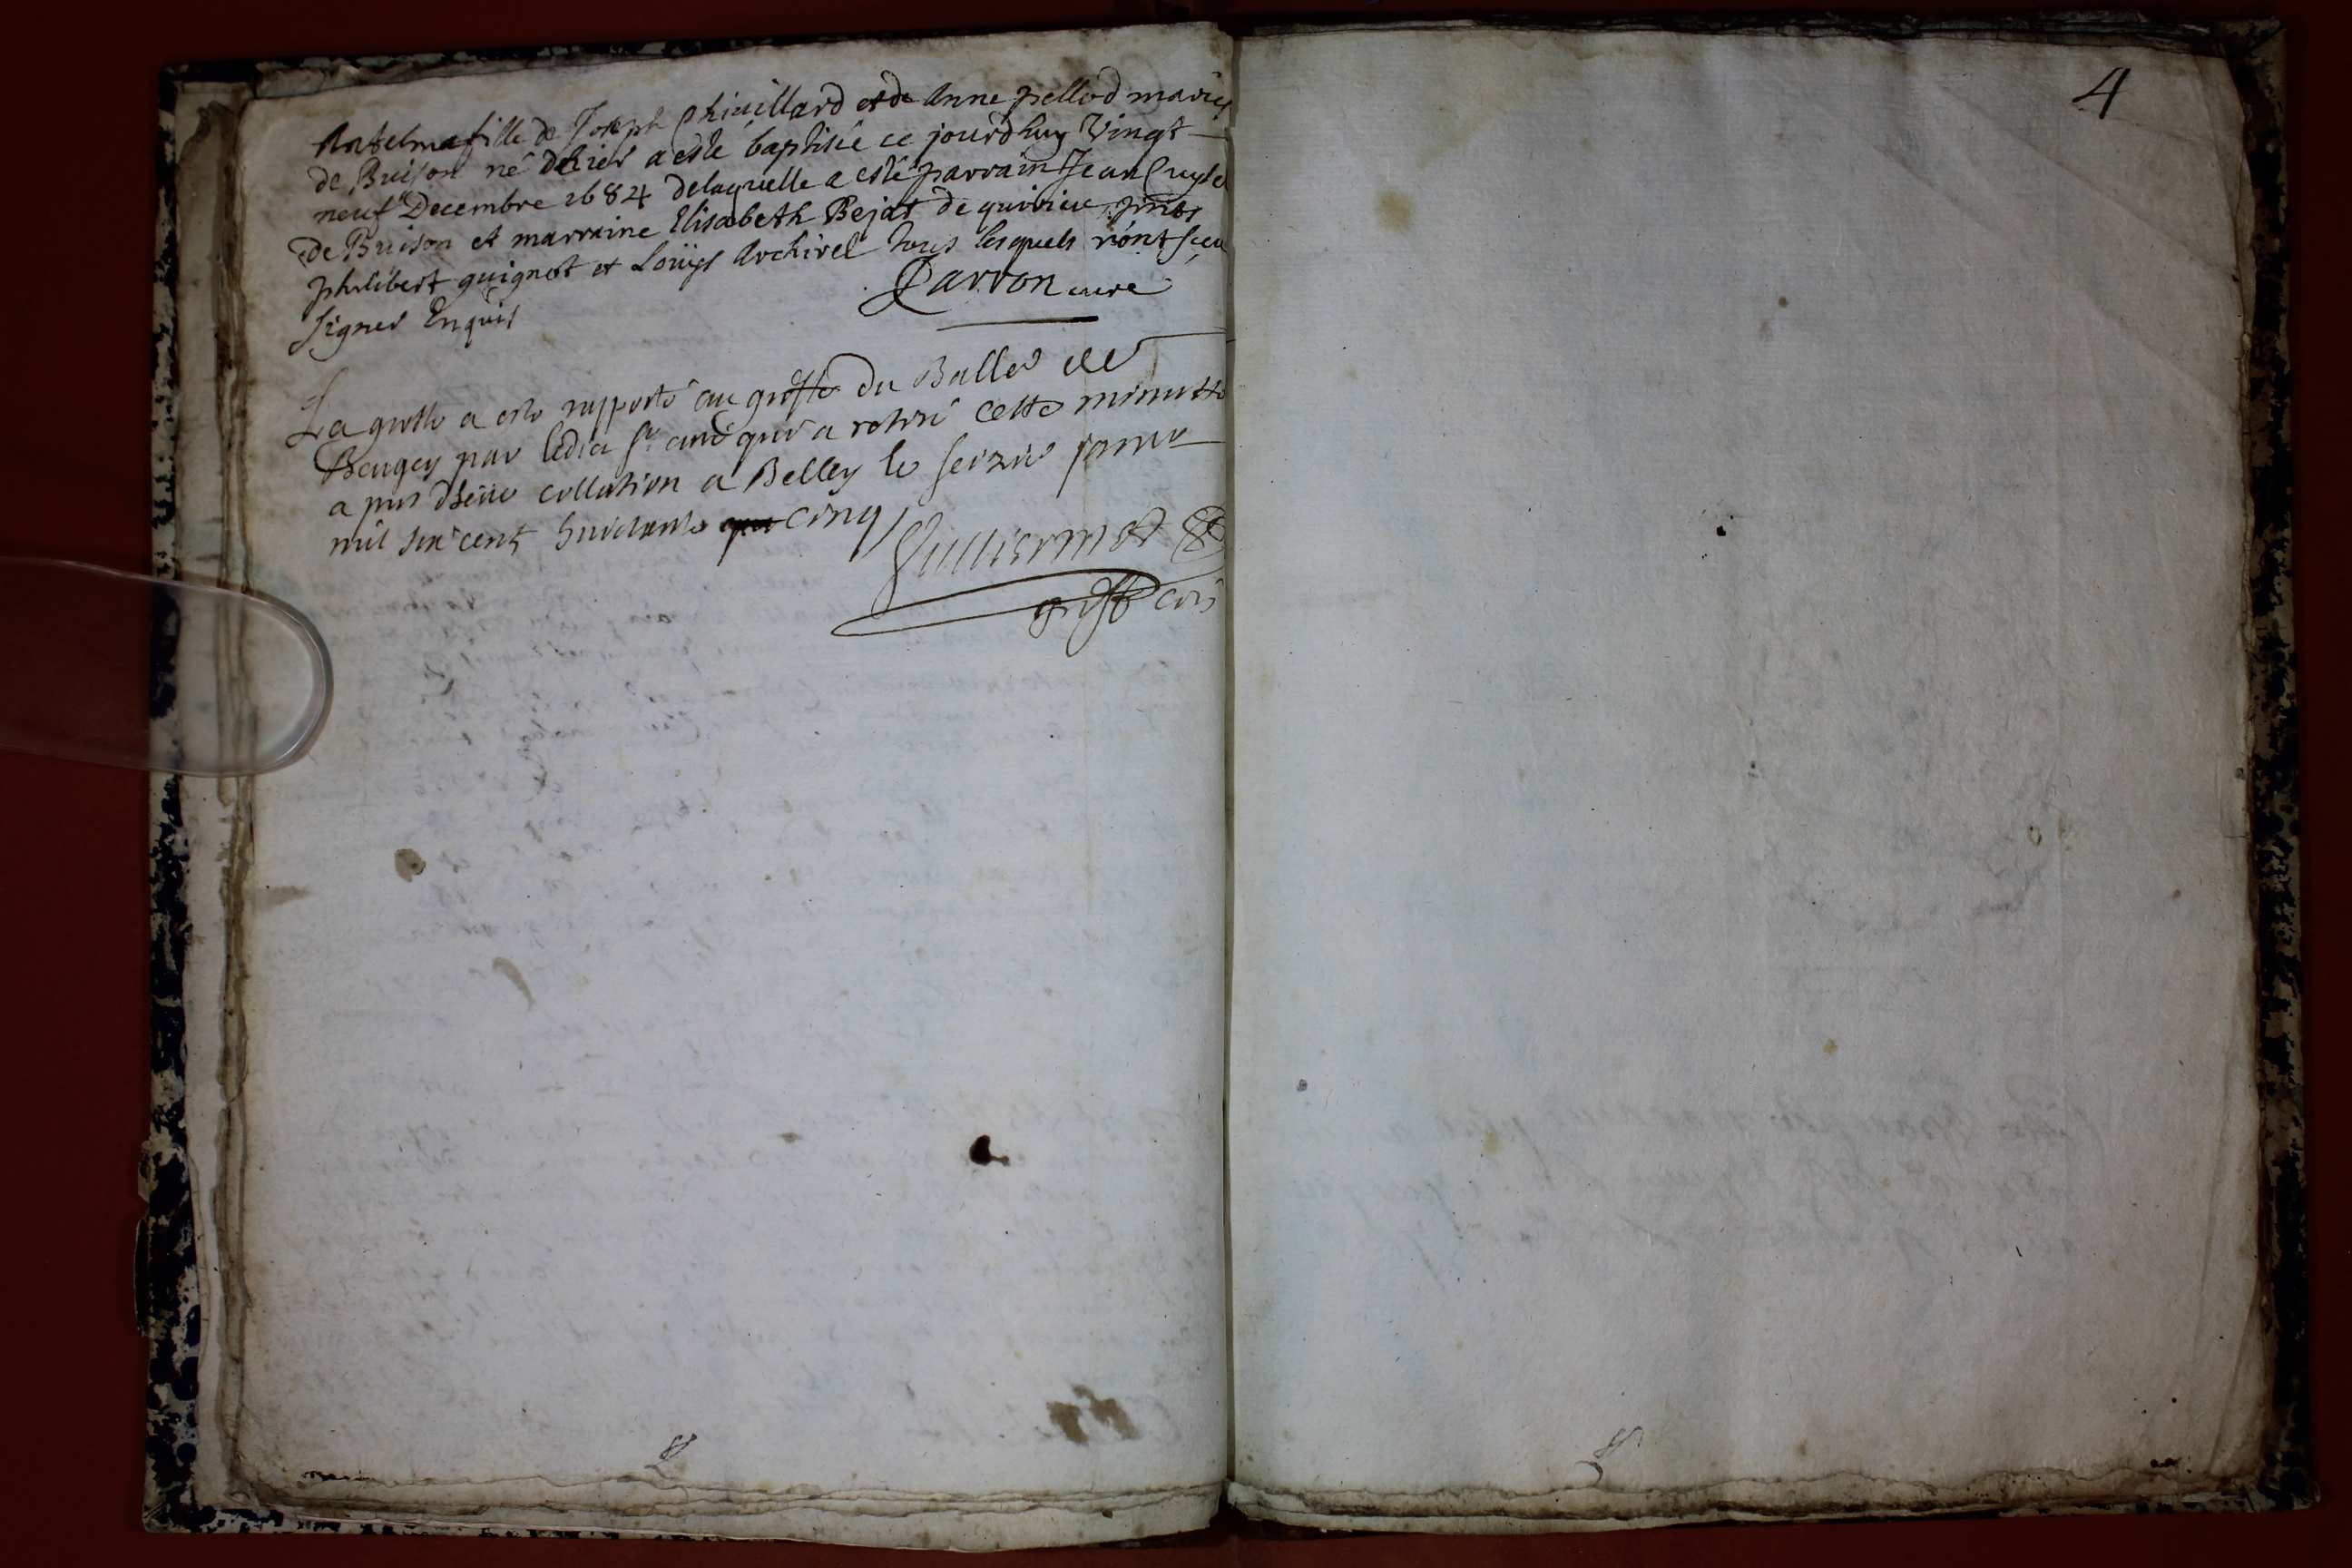 4
Antelma fille de Joseph Chivillard et de Anne pellod mariés
de Buison né dehier a esté baptisée ce jourdhuy Vingt
neuf Decembre 1684 delaquelle a esté parrain Jean
de Buison et marraine Elisabeth Bejat de quirieu pnts
philibert guignot et Loüys Archirel tous lesquels n'ont sceu
signer Enquis
Carron curé
La grosse a esté rapporté au greffe du Balle de
Beugey par ledict sr curé qui a retiré cette minutte
apres dheue collation a Belley le seizie janvie
mil six cent huictante cinq
Guilliermet
greff